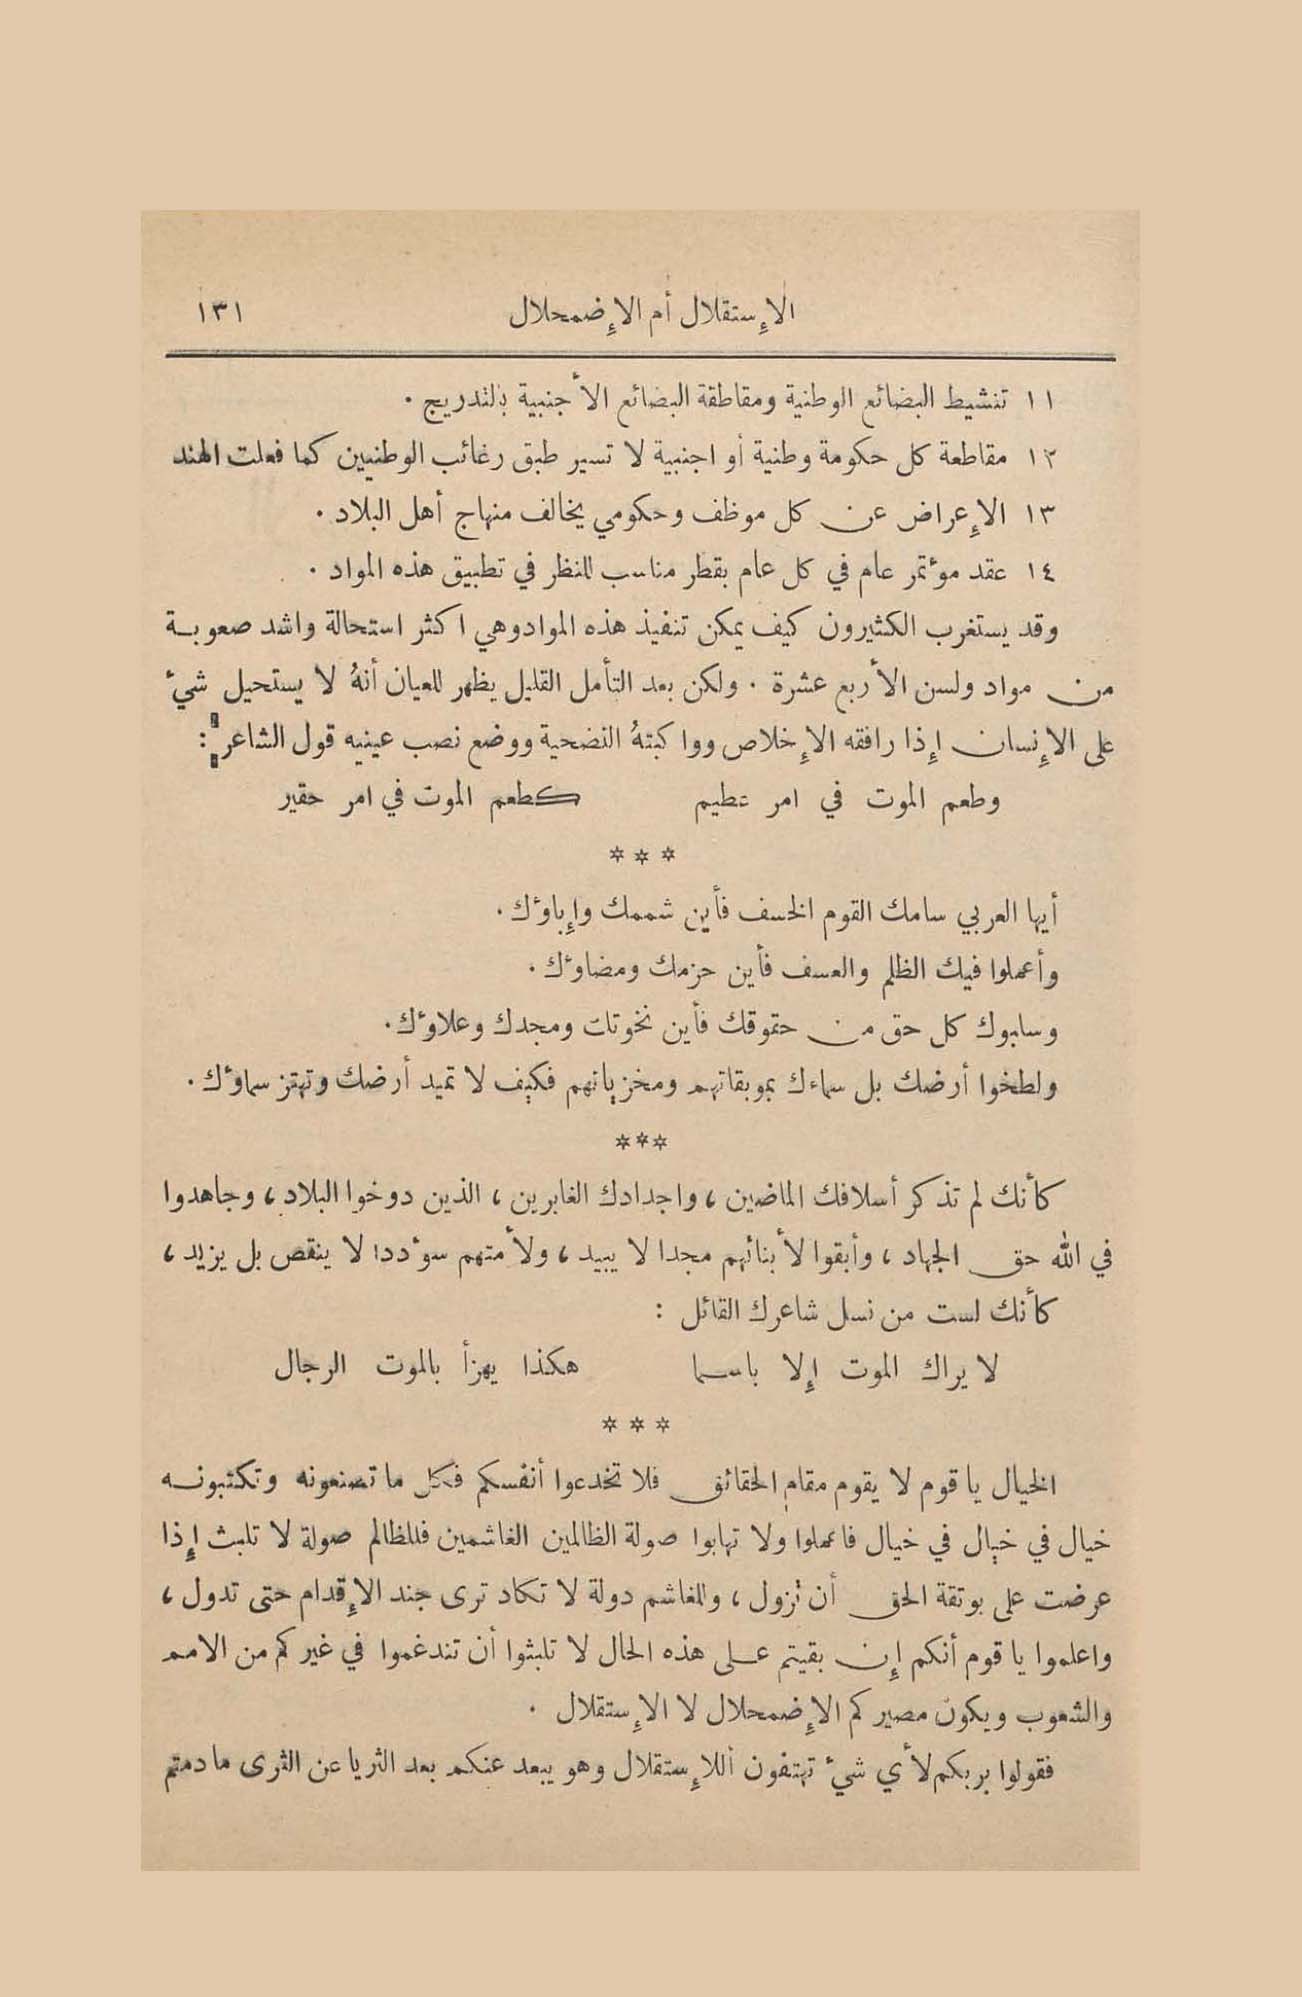 الإستقلال أم الإضمحلال ١٣١
١١ تنشيط البضائع الوطنية ومقاطقة البضائع الأجنبية بالتدريج .
١٢ مقاطعة كل حكومة وطنية أو اجنبية لا تسير طبق رغائب الوطنيين كما فعلت الهند
١٣ الإعراض عن كل موظف وحكومي يخالف منهاج أهل البلاد .
١٤ عقد مؤتمر عام في كل عام بقطر مناسب للنظر في تطبيق هذه المواد .
وقد يستغرب الكثيرون كيف يمكن تنفيذ هذه المواد وهي اكثر استحالة واشد صعوبة
من مواد ولسن الأربع عشرة . ولكن بعد التأمل القليل يظهر للعيان أنهُ لا يستحيل شيء
على الإنسان إذا رافقه الإخلاص وواكبتهُ التضحية ووضع نصب عينيه قول الشاعر :
وطعم الموت في امر عظيم كطعم الموت في امر حقير
* * *
أيها العربي سامك القوم الخسف فأين شممك وإباؤك .
وأعملوا فيك الظلم والعسف فأين حزمك ومضاؤك .
وسلبوك كل حق من حقوقك فأين نخوتك ومجدك وعلاؤك .
ولطخوا أرضك بل سماءك بموبقاتهم ومخزياتهم فكيف لا تميد أرضك وتهتز سماؤك .
***
كأنك لم تذكر أسلافك الماضين ، واجدادك الغابرين ، الذين دوخوا البلاد ، وجاهدوا
في الله حق الجهاد ، وأبقوا لأبنائهم مجدا لا يبيد ، ولأمتهم سؤددا لا ينقص بل يزيد ،
كأنك لست من نسل شاعرك القائل :
لا يراك الموت إلا باسما هكذا يهزأ بالموت الرجال
* * *
الخيال يا قوم لا يقوم مقام الحقائق فلا تخدعوا أنفسكم فكل ما تصنعونه وتكتبونه
خيال في خيال في خيال فاعملوا ولا تهابوا صولة الظالمين الغاشمين فللظالم صولة لا تلبث إذا
عرضت على بوتقة الحق أن تزول ، وللغاشم دولة لا تكاد ترى جند الإقدام حتى تدول ،
واعلموا يا قوم أنكم إن بقيتم على هذه الحال لا تلبثوا أن تندغموا في غيركم من الامم
والشعوب ويكون مصيركم الإضمحلال لا الإستقلال .
فقولوا بربكم لأي شيء تهتفون أللإستقلال وهو يبعد عنكم بعد الثريا عن الثرى ما دمتم